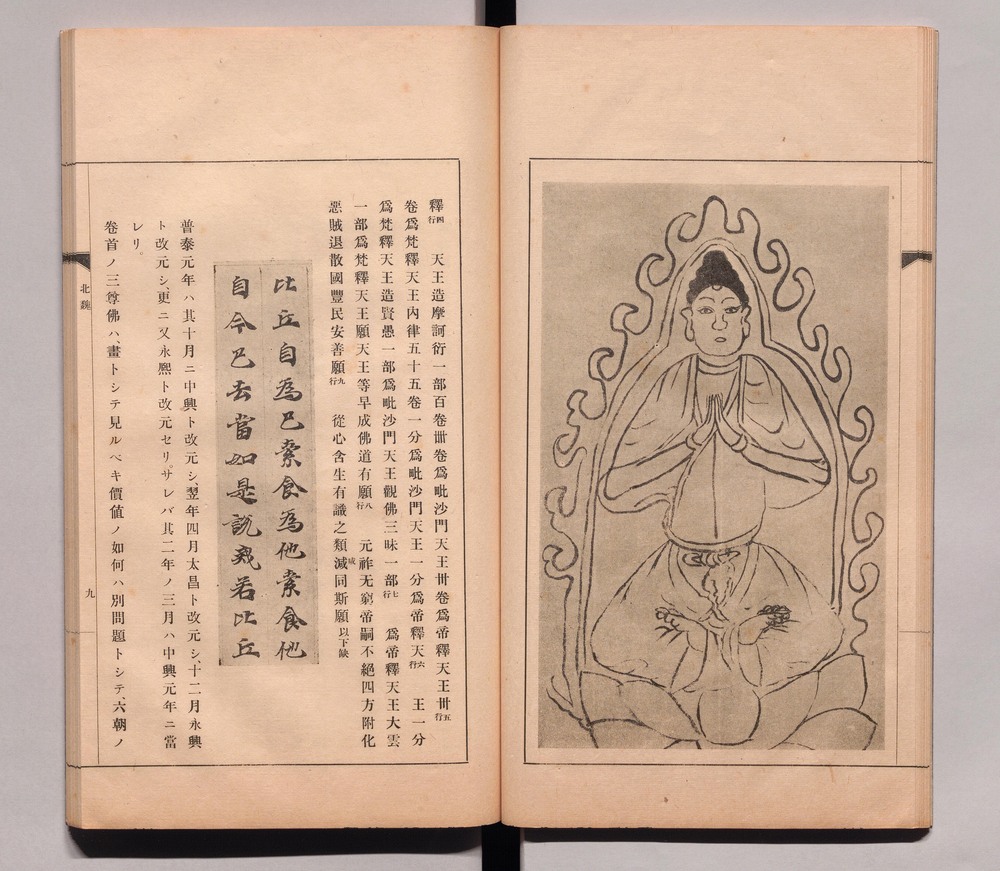 釋四行　天王造摩訶衍一部百卷卌卷爲毗沙門天王卅卷爲帝釋天王卅五行
卷爲梵釋天王內律五十五卷一分爲毗沙門天王一分爲帝釋天六行　王一分
爲梵釋天王造賢愚一部爲毗沙門天王觀佛三昧一部七行　爲帝釋天王大雲
一部爲梵釋天王願天王等早成佛道有願八行　元祚无窮帝嗣不絕四方附化
惡賊退散國豐民安善願九行　從心含生有識之類減咸同斯願以下缺
比丘自為巳索食為他索食他
自今巳去當如是說戒若比丘
普泰元年ハ其十月ニ中興ト改元シ、翌年四月太昌ト改元シ、十二月永興
ト改元シ、更ニ又永熙ト改元セリ。サレバ其二年ノ三月ハ中興元年ニ當
レリ。
卷首ノ三尊佛ハ、畫トシテ見ルベキ價値ノ如何ハ別問題トシテ、六朝ノ
北魏
九